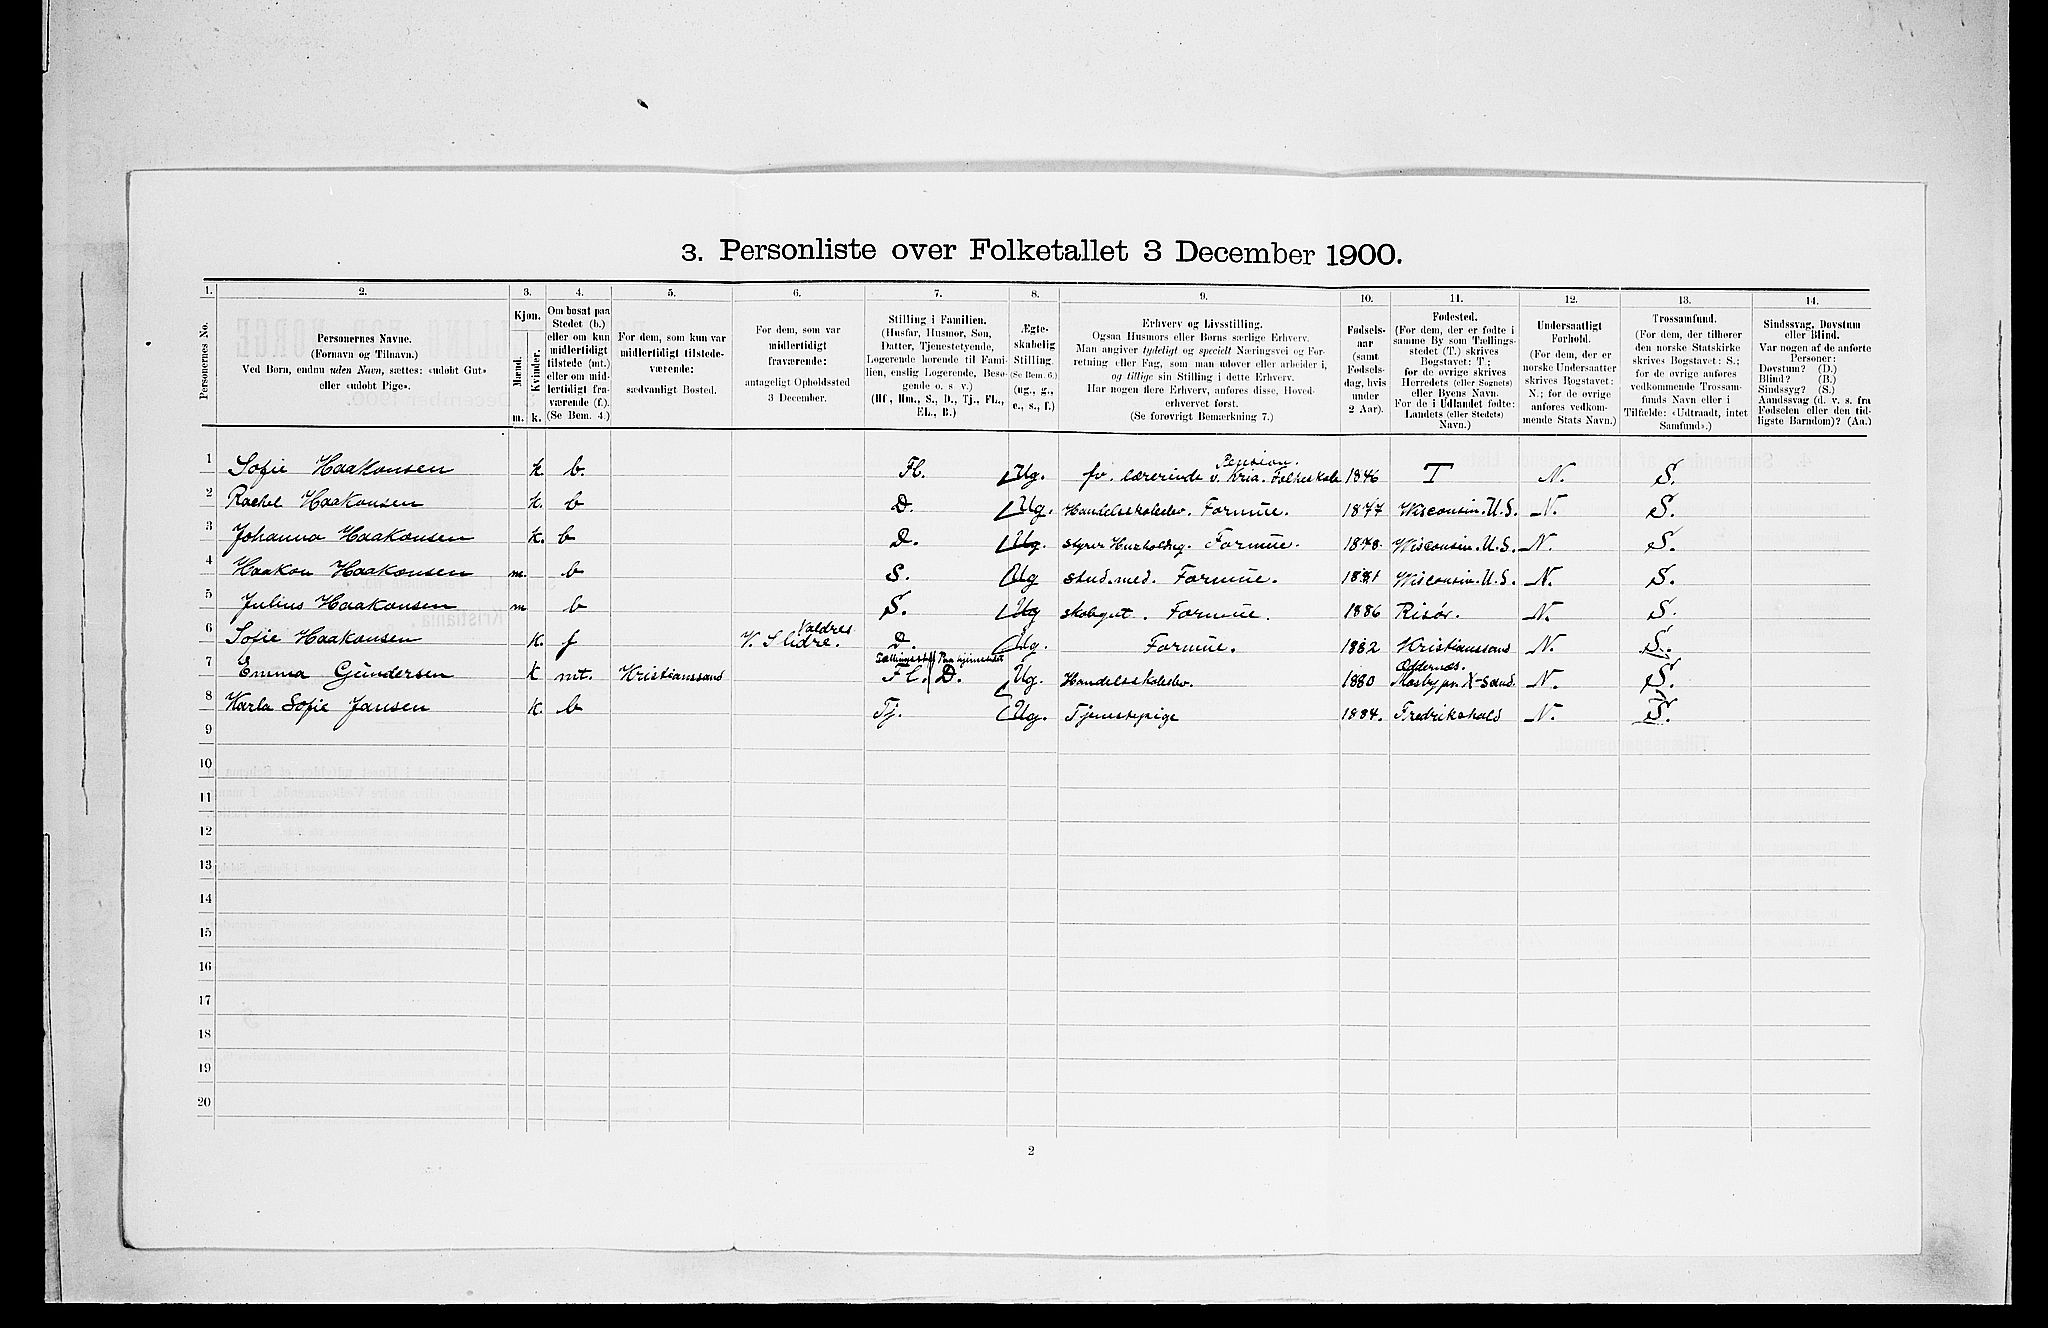 3. Personliste over Folketallet 3 December 1900.
1. 2. 3. 4. 5. 6. 7. 8. 9. 10. 11. 12. 13. 14.
Personernes No.
Personernes Navne.
(Fornavn og Tilnavn.)
Ved Børn, endnu uden Navn, sættes: «udøbt Gut»
eller «udøbt Pige».
Kjøn.
Mænd. Kvinder.
m. k.
Om bosat paa
Stedet (b.)
eller om kun
midlertidigt
tilstede (mt.)
eller om mid-
lertidigt fra-
værende (f.).
(Se Bem. 4.)
For dem, som kun var
midlertidigt tilstede-
værende:
sædvanligt Bosted.
For dem, som var
midlertidigt
fraværende:
antageligt Opholdssted
3 December.
Stilling i Familien.
(Husfar, Husmor, Søn,
Datter, Tjenestetyende,
Logerende hørende til Fami-
lien, enslig Logerende, Besø-
gende o. s v.)
(Hf, Hm., S., D., Tj., FL.,
EL., B.)
Ægte-
skabelig
Stilling.
(Se Bem. 6.)
(ug., g.,
e., s., f.)
Erhverv og Livsstilling.
Ogsaa Husmors eller Børns særlige Erhverv.
Man angiver tydeligt og specielt Næringsvei og For-
retning eller Fag, som man udøver eller arbeider i,
og tillige sin Stilling i dette Erhverv.
Har nogen flere Erhverv, anføres disse, Hoved-
erhvervet først.
(Se forøvrigt Bemærkning 7.)
Fødsels-
aar
(samt
Fødsels-
dag, hvis
under
2 Aar).
Fødested.
(For dem, der er fødte i
samme By som Tællings-
stedet (T.) skrives
Bogstavet: T ;
for de øvrige skrives
Herredets (eller Sognets)
eller Byens Navn.
For de i Udlandet fødte:
Landets (eller Stedets)
Navn.)
Undersaatligt
Forhold.
(For dem, der er
norske Undersaatter
skrives Bogstavet:
N.; for de øvrige
anføres vedkom-
mende Stats Navn.)
Trossamfund.
(For dem, der tilhører
den norske Statskirke
skrives Bogstavet: S.;
for de øvrige anføres
vedkommende Trossam-
funds Navn eller i
Tilfælde: «Udtraadt, intet
Samfund».)
Sindssvag, Døvstum
eller Blind.
Var nogen af de anførte
Personer:
Døvstum? (D.)
Blind? (B.)
Sindssyg? (S.)
Aandssvag (d. v. s. fra
Fødselen eller den tid-
ligste Barndom)? (Aa.)
1 Sofie Haakonsen k b. Fl. Ug. fv. lærerinde v. Kria. Folkeskole Pension. 1846 T N. S.
2 Rachel Haakonsen k. b D. Ug. Handelsskoleelev. Formue. 1877 Wisconsin. U.S. N. S.
3 Johanna Haakonsen k. b D. Ug. styrer Husholdng. Formue. 1878. Wisconsin. U.S. N. S.
4 Haakon Haakonsen m. b S. Ug stud. med. Formue. 1881 Wisconsin. U.S. N. S.
5 Julius Haakonsen m b S. Ug skolegut. Formue. 1886 Risør. N. S.
6 Sofie Haakonsen k. f V. Slidre. Valdres D. Ug. Formue. 1882 Kristianssand N. S.
7 Emma Gundersen k mt. Kristianssand Fl. D. Ug. Handelsskoleelev. 1880 Oddernæs. Mosby pr. K-sand. N. S.
8 Karla Sofie Jansen k. b Tj. Ug. Tjenestepige 1884. Fredrikshald N. S.
9
10
11
12
13
14
15
16
17
18
19
20
2